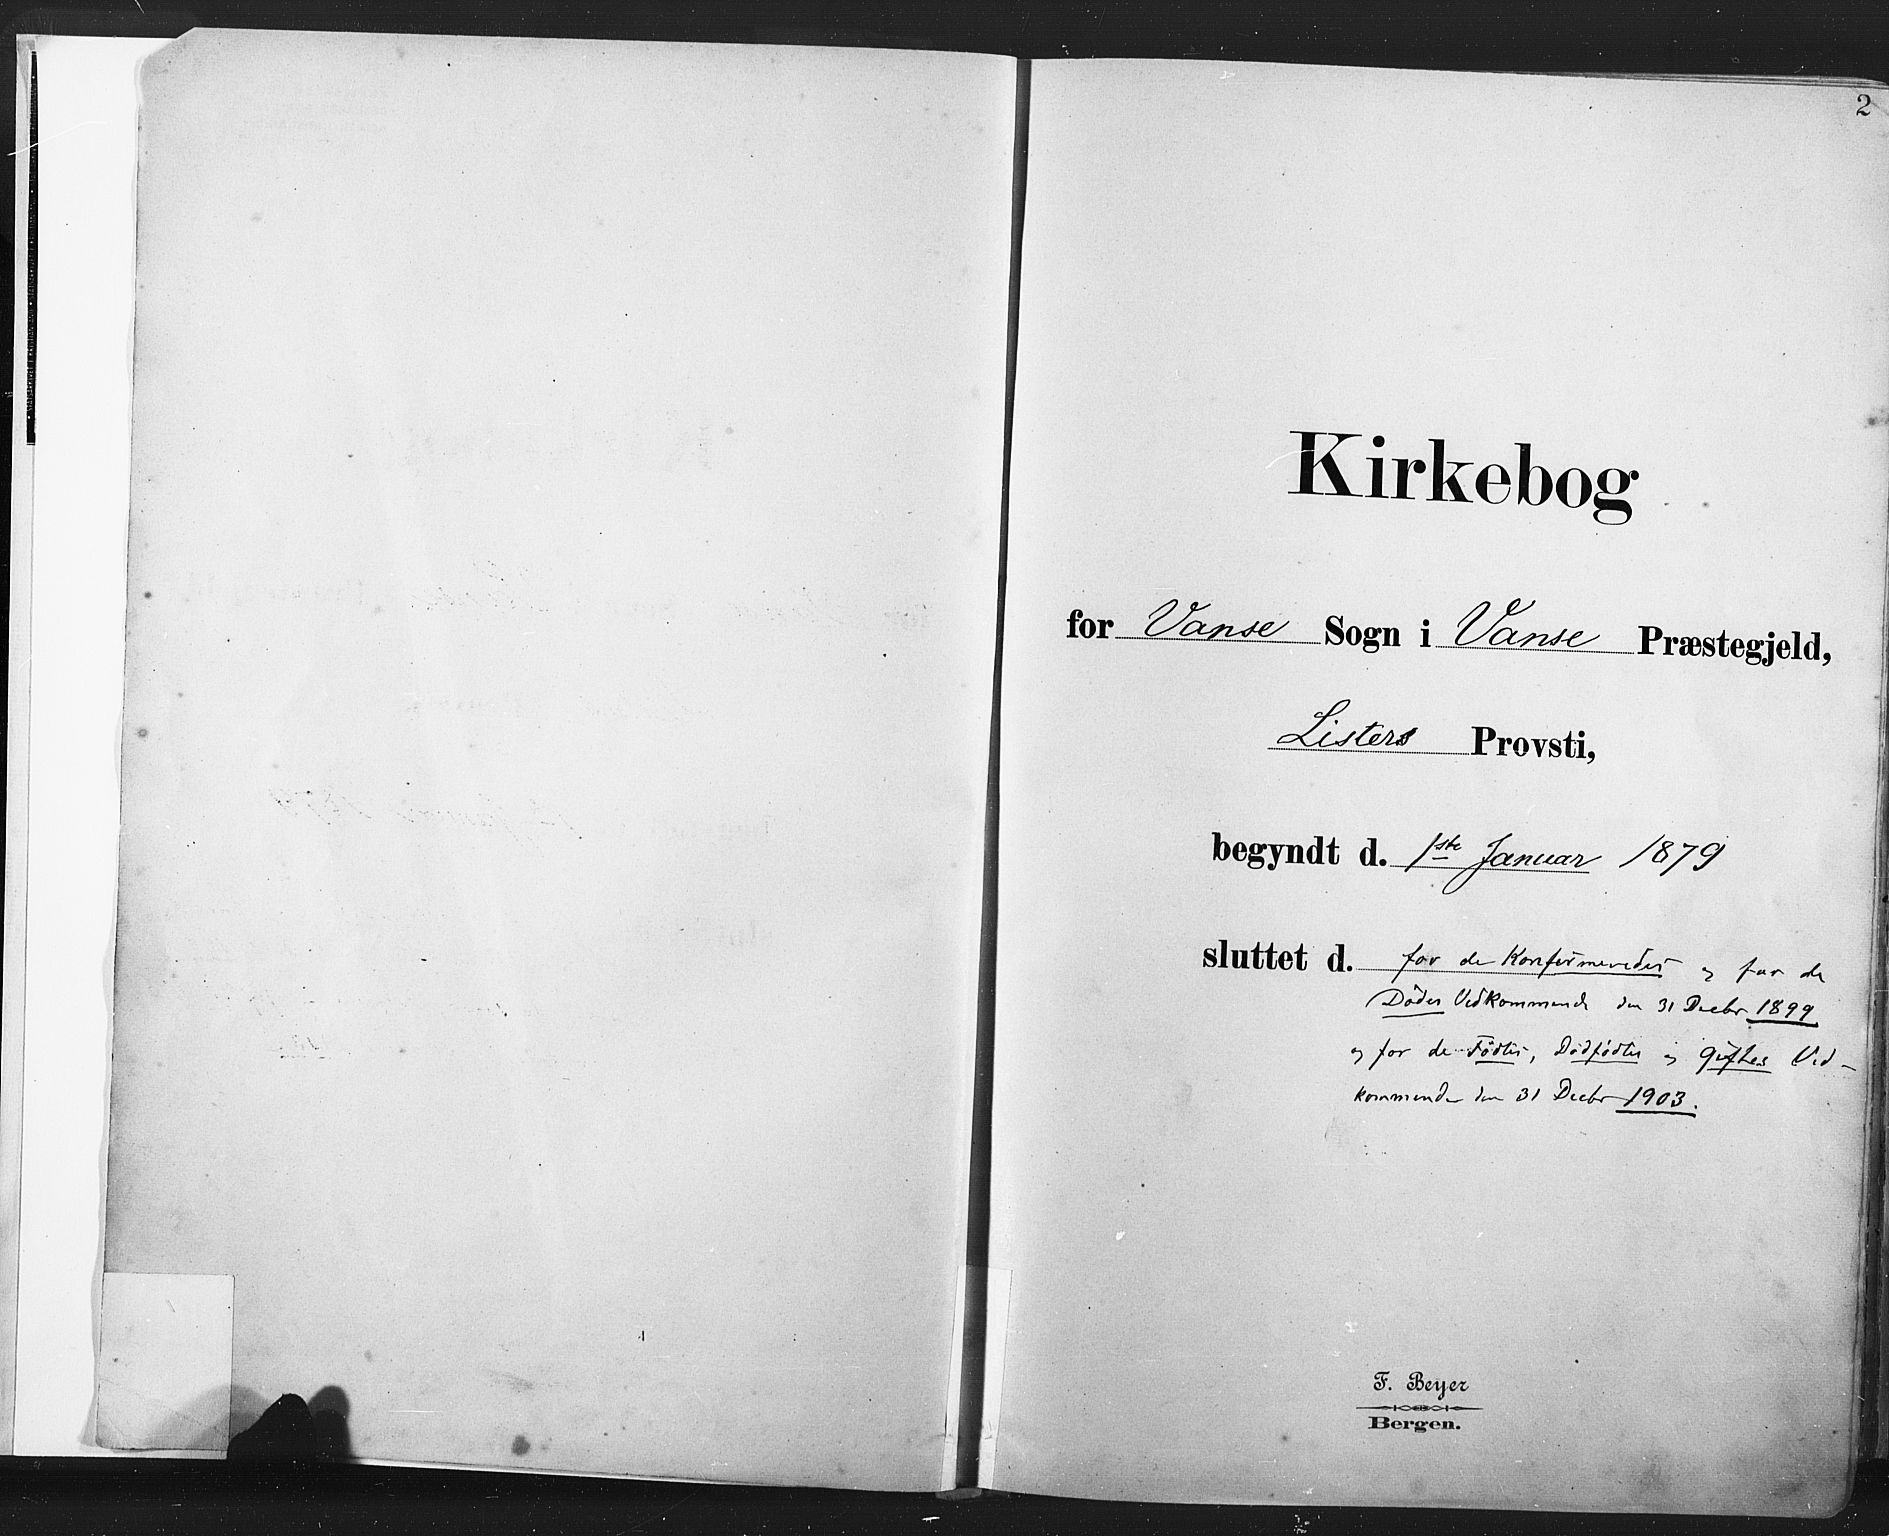 2
Kirkebog
for Vanse Sogn i Vanse Præstegjeld,
Listers Provsti,
begyndt d. 1ste Januar 1879
sluttet d. for de Konfirmeredes og for de
Dødes Vedkommende den 31 Decbr 1899
og for de Fødtes, Dødfødtes og giftes Ved-
kommende den 31 Decbr 1903.
F. Beyer
Bergen.